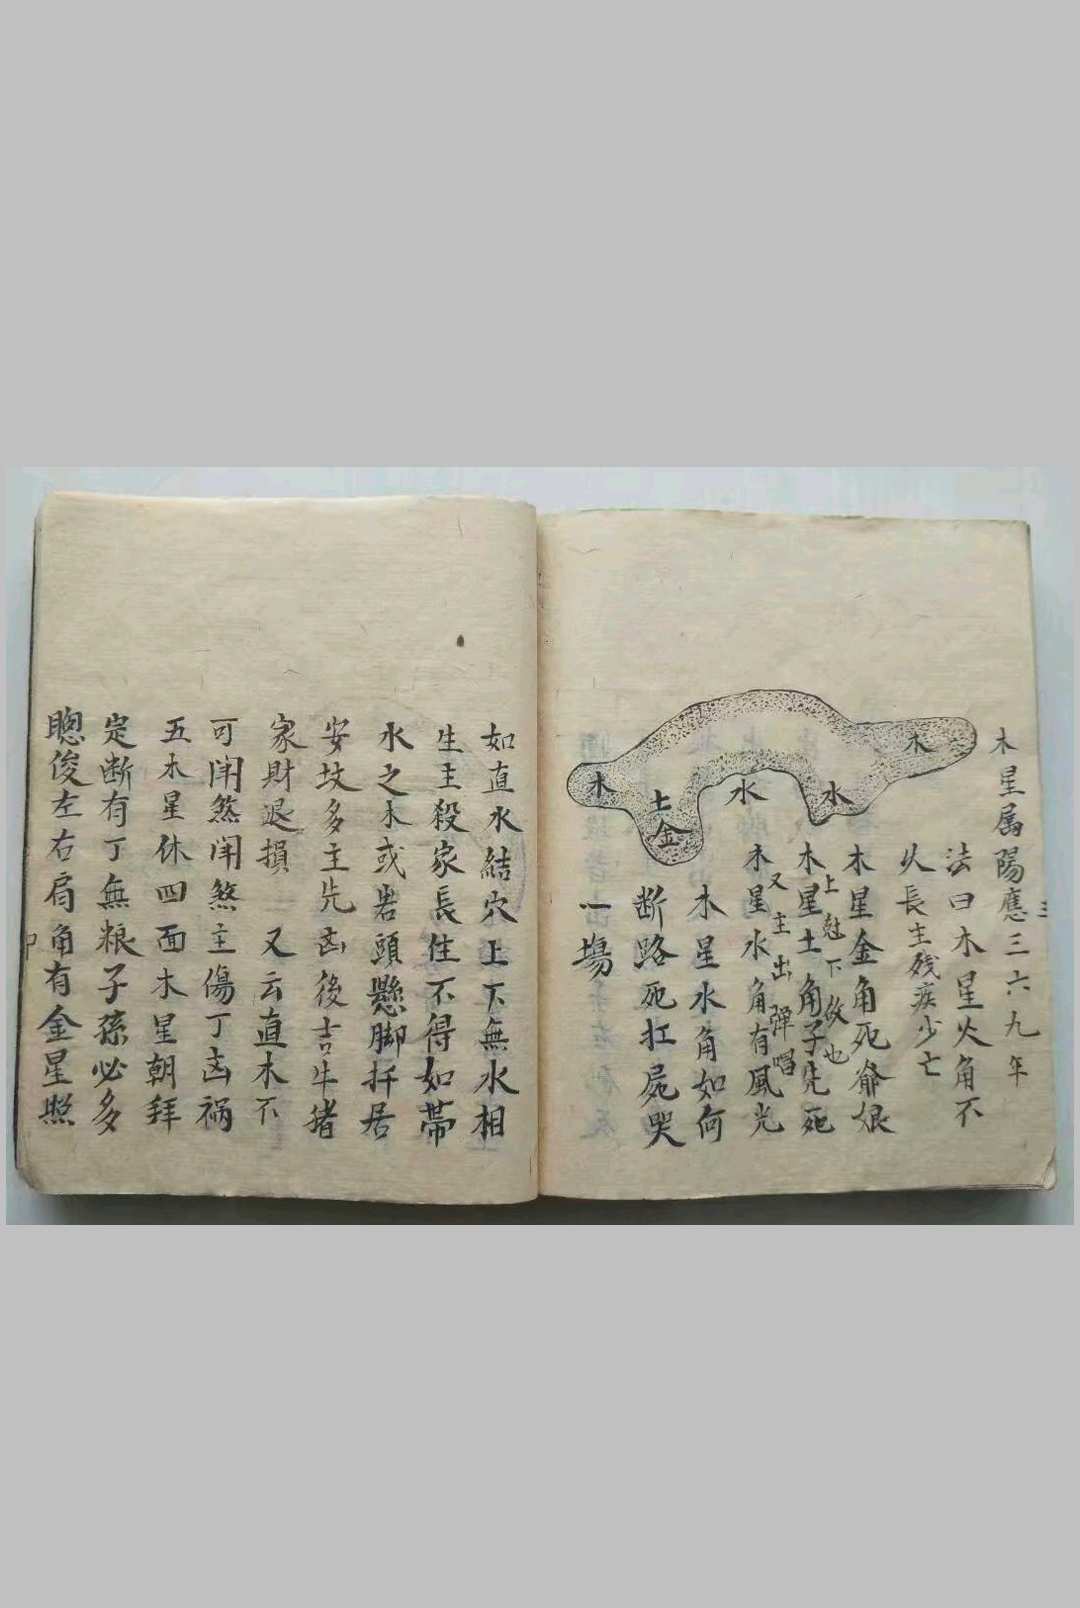 木星属陽應三六九年
法曰木星火角不
久長主残疾少亡
木星金角死爺娘
木星土角子先死
上尅下故也
木星水角有風光
又主出彈唱
木星水角如何
断路死扛屍哭
一場
木
土
金
水
水
木
如直木結穴上下無水相
生主殺家長住不得如帯
水之木或岩頭懸脚扦居
安坟多主先凶後吉牛猪
家財退損 又云直木不
可開煞開煞主傷丁凶禍
五木星休四面木星朝拜
定断有丁無粮子孫必多
聰俊左右肩角有金星照